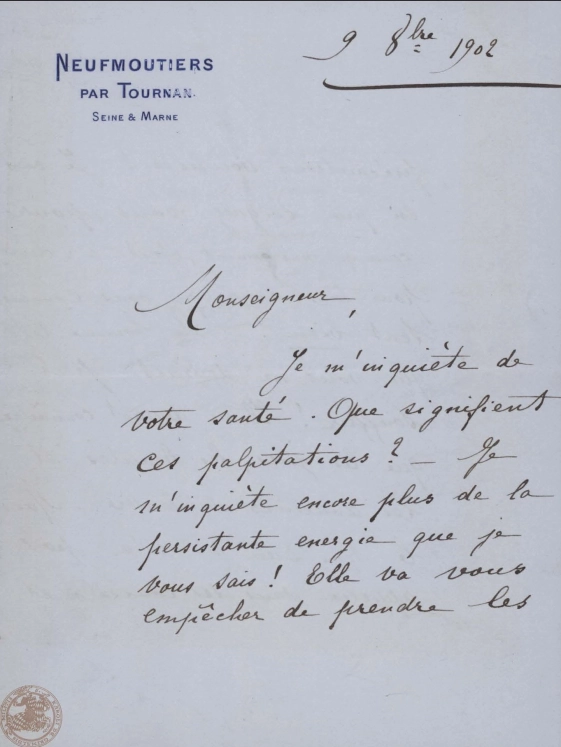 9 8bre 1902
NEUFMOUTIERS
PAR TOURNAN.
SEINE & MARNE
Monseigneur,
Je m'inquiète de
votre santé. Que signifient
ces palpitations ? — Je
m'inquiète encore plus de la
persistante energie que je
vous sais ! Elle va vous
empêcher de prendre les